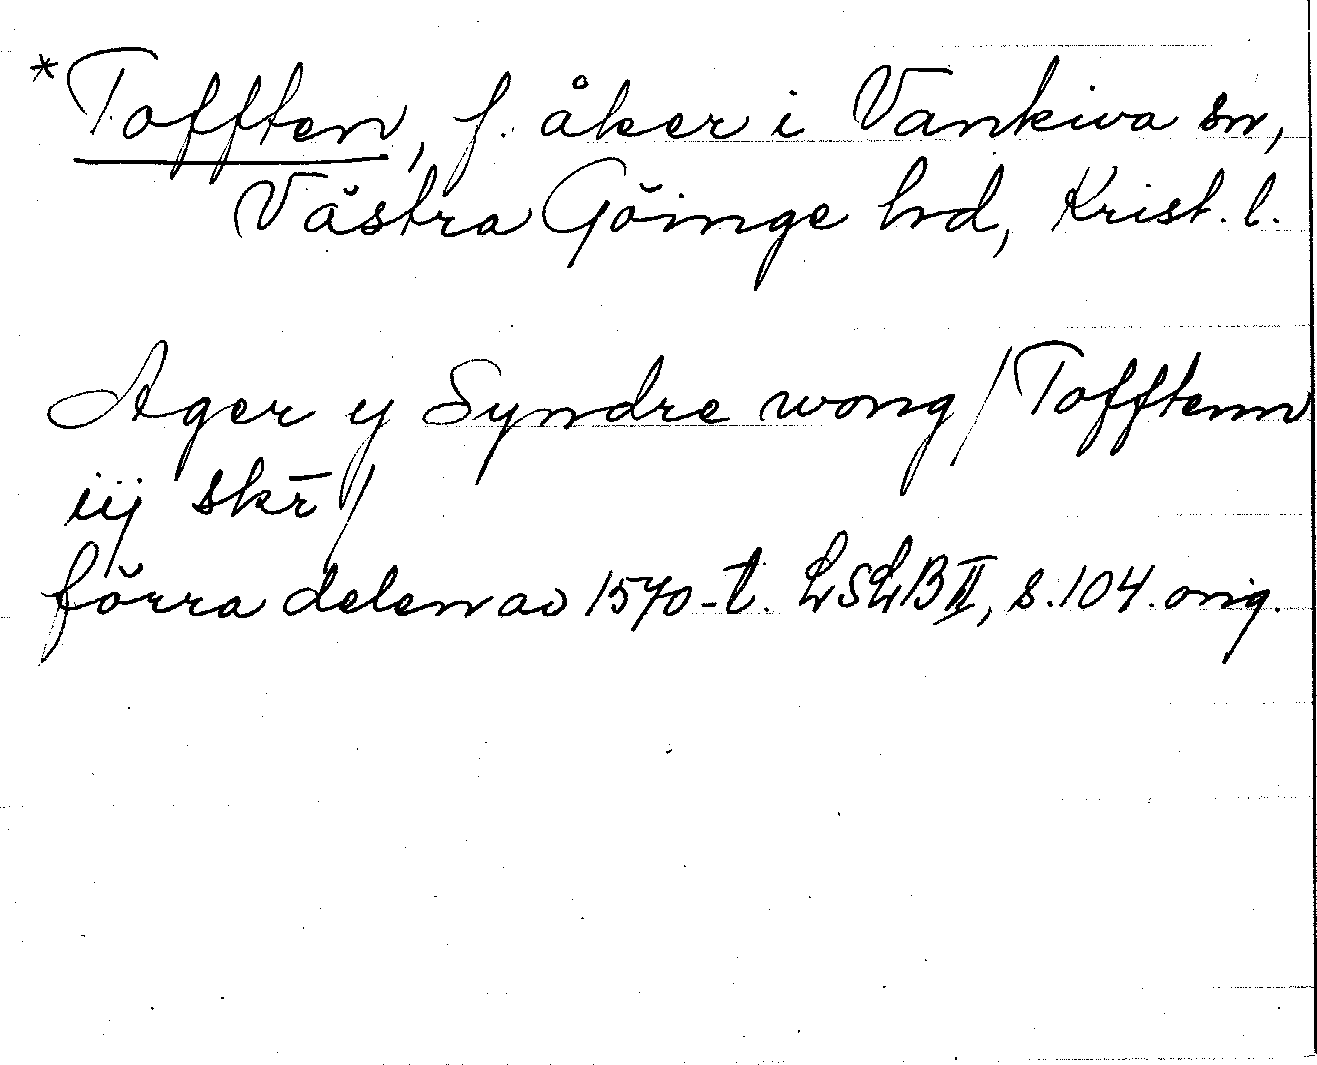 *Tofften, f. åker i Vankiva sn,
Västra Göinge hd, Krist. l.
Ager y Syndre wong / Tofftenn
iij skr̄ /
förra delen av 1570-t. LSLB II, s. 104. orig.